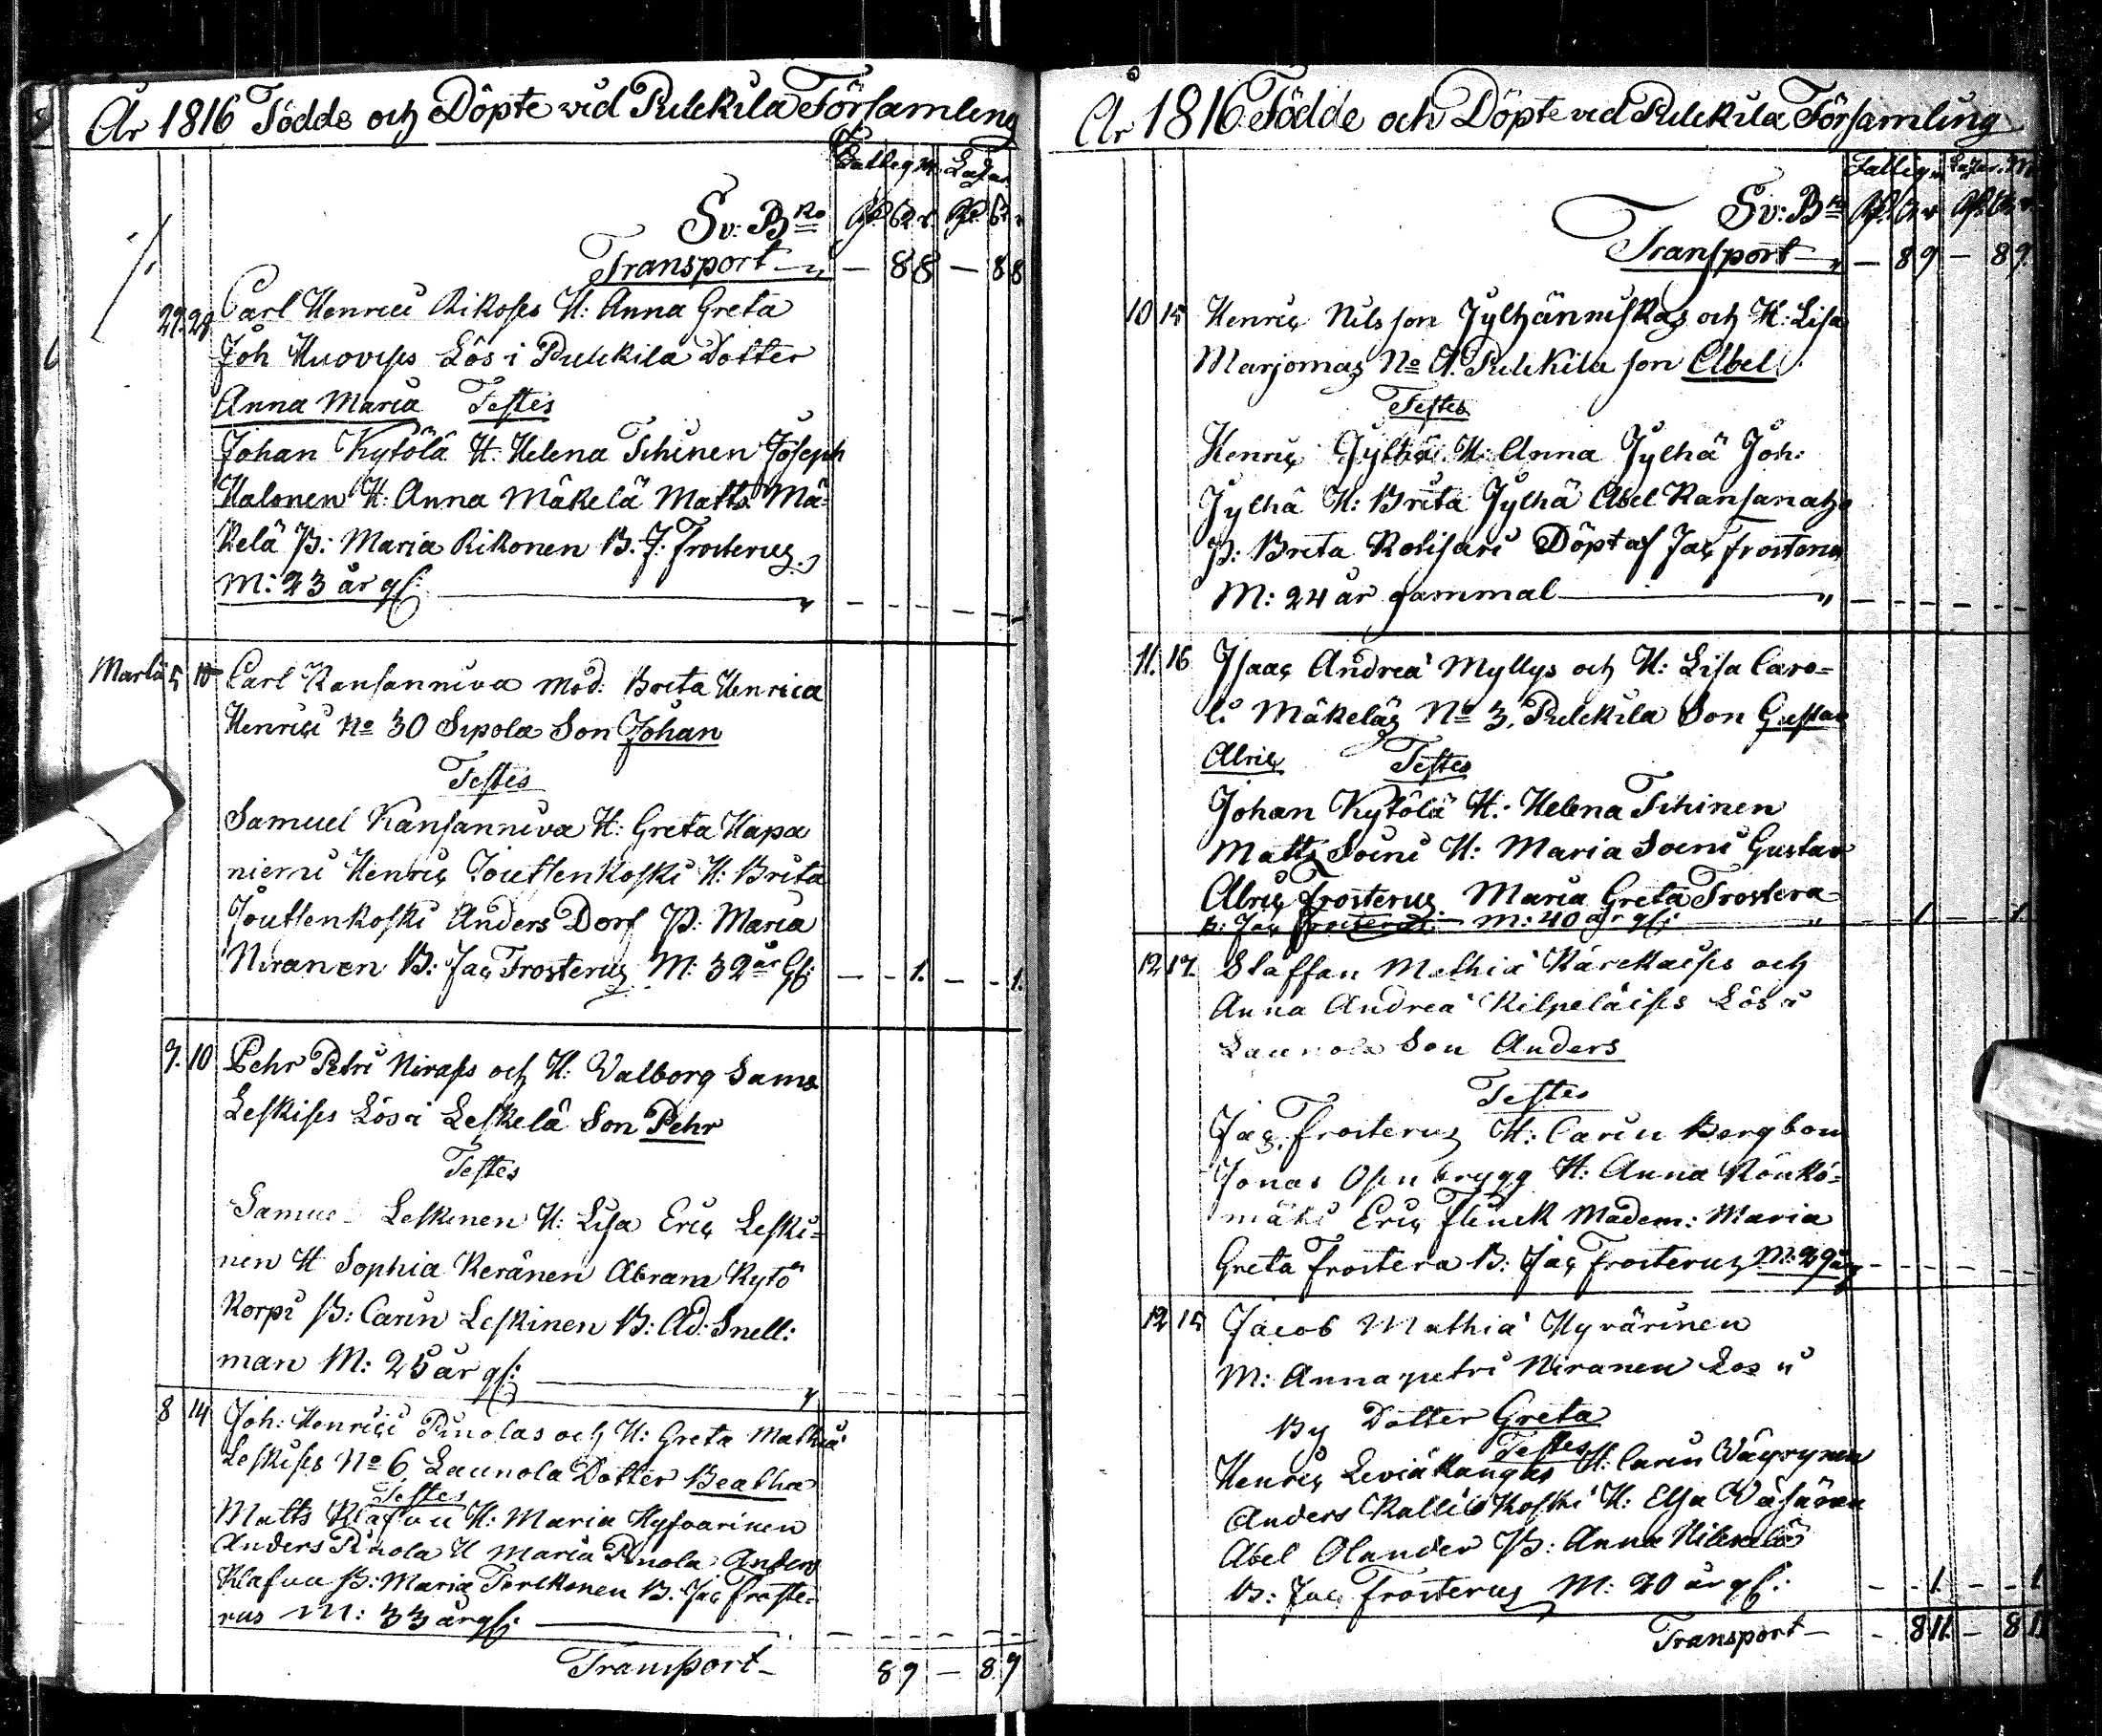 År 1816 Födde och Döpte vid Pulckila Församling
Fattig M. Lazar.
Sv: Bko Rd. ß. r. Rd. ß. r.
Transport — 8 8 — 8 8
29. 28 Carl Henrici Rikoses H: Anna Greta
Joh Huovises Lös i Pulckila Dotter
Anna Maria Testes
Johan Kytölä H. Helena Tihinen Joseph
Halonen H: Anna Mäkelä Matts Mä-
kelä P: Maria Rikonen B. J. Frosterus
M: 23 år gl: — — — — —
Marti 5 10 Carl Kansanniva Mod: Brita Henrica
Henrici No 30 Sipola Son Johan
Testes
Samuel Kansanniva H: Greta Hapa
niemi Henric Jouttenkoski H: Brita
Jouttenkoski Anders Dorf P: Maria
Niranen B: Jac Frosterus M: 32 år Gl: — - 1. — - 1.
7. 10 Pehr Petri Nirases och H: Valborg Sams
Leskises Lös i Leskelä Son Pehr
Testes
Samuel Leskinen H: Lisa Eric Leski=
nen H Sophia Keränen Abram Kytö
Korpi P: Carin Leskinen B: Ad: Snell:
man M: 25 år gl:
8 14 Joh: Henrici Pinolas och H: Greta Mathiæ
Leskises No 6 Launola Dotter Beatha
Testes
Matts Klafvu H: Maria Hyfvarinen
Anders Pinola H Maria Pinola Anders
Klafvu P: Maria Torckonen B. Jac Froste-
rus M: 33 år gl:
Transport — 8 9 — 8 9
År 1816 Födde och Döpte vid Pulckila Församling
Fattig m. Lazar. M
Sv: Bko Rd. ß. r. Rd. ß. r.
Transport — 8 9 — 8 9.
10 15 Henric Nilsson Jylhänniskas och H: Lisa
Marjomas No 1. Pulckila son Abel
Testes
Henric Jylhä H: Anna Jylhä Joh:
Jylhä H: Brita Jylhä Abel Kansanaho
P: Brita Kotisari Döpt af Jac Frosterus
M: 24 år gammal
11. 16 Isaac Andreæ Myllys och H: Lisa Caro=
li Mäkeläs No 3, Pulckila Son Gustav
Alric Testes
Johan Kytölä H: Helena Tihinen
Matts Soini H: Maria Soini Gustav
Alric Frosterus Maria Greta Frostera
B: Jac Frosterus M: 40 år gl: — 1 — 1.
12 17. Staffan Mathiæ Kärckaises och
Anna Andreæ Kilpeläises Lös i
Launola Son Anders
Testes
Jac. Frosterus H: Carin Bergbom
Jonas Osenbrygg H: Anna Rönkö=
mäki Eric Flinck Madem: Maria
Greta Frostera B: Jac Frosterus M: 29 år
12 15 Jacob Mathiæ Hyvärinen
M: Anna petri Niranen Lös i
By Dotter Greta
Testes
Henric Leviäkangas H: Carin Väyrynen
Anders Kalliokoski H: Elsa
Abel Olander P: Anna
B: Jac Frosterus M: 20 år gl: - - 1. — - 1.
Transport — - 8 11. — 8 11